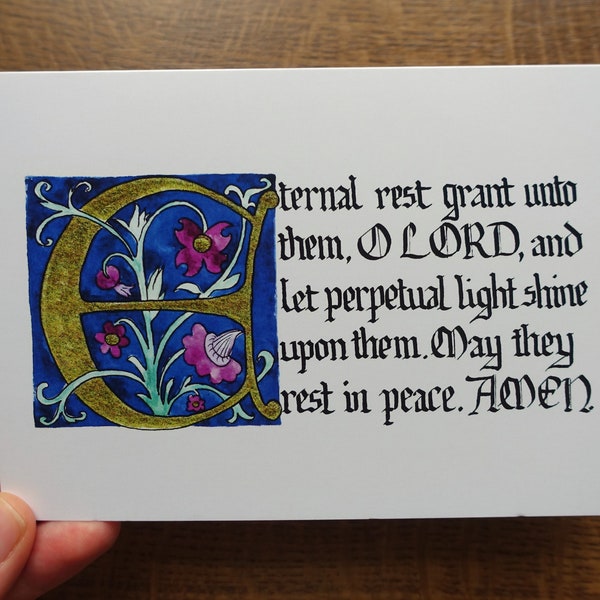 Eternal rest grant unto
them, O LORD, and
let perpetual light shine
upon them. May they
rest in peace. AMEN.